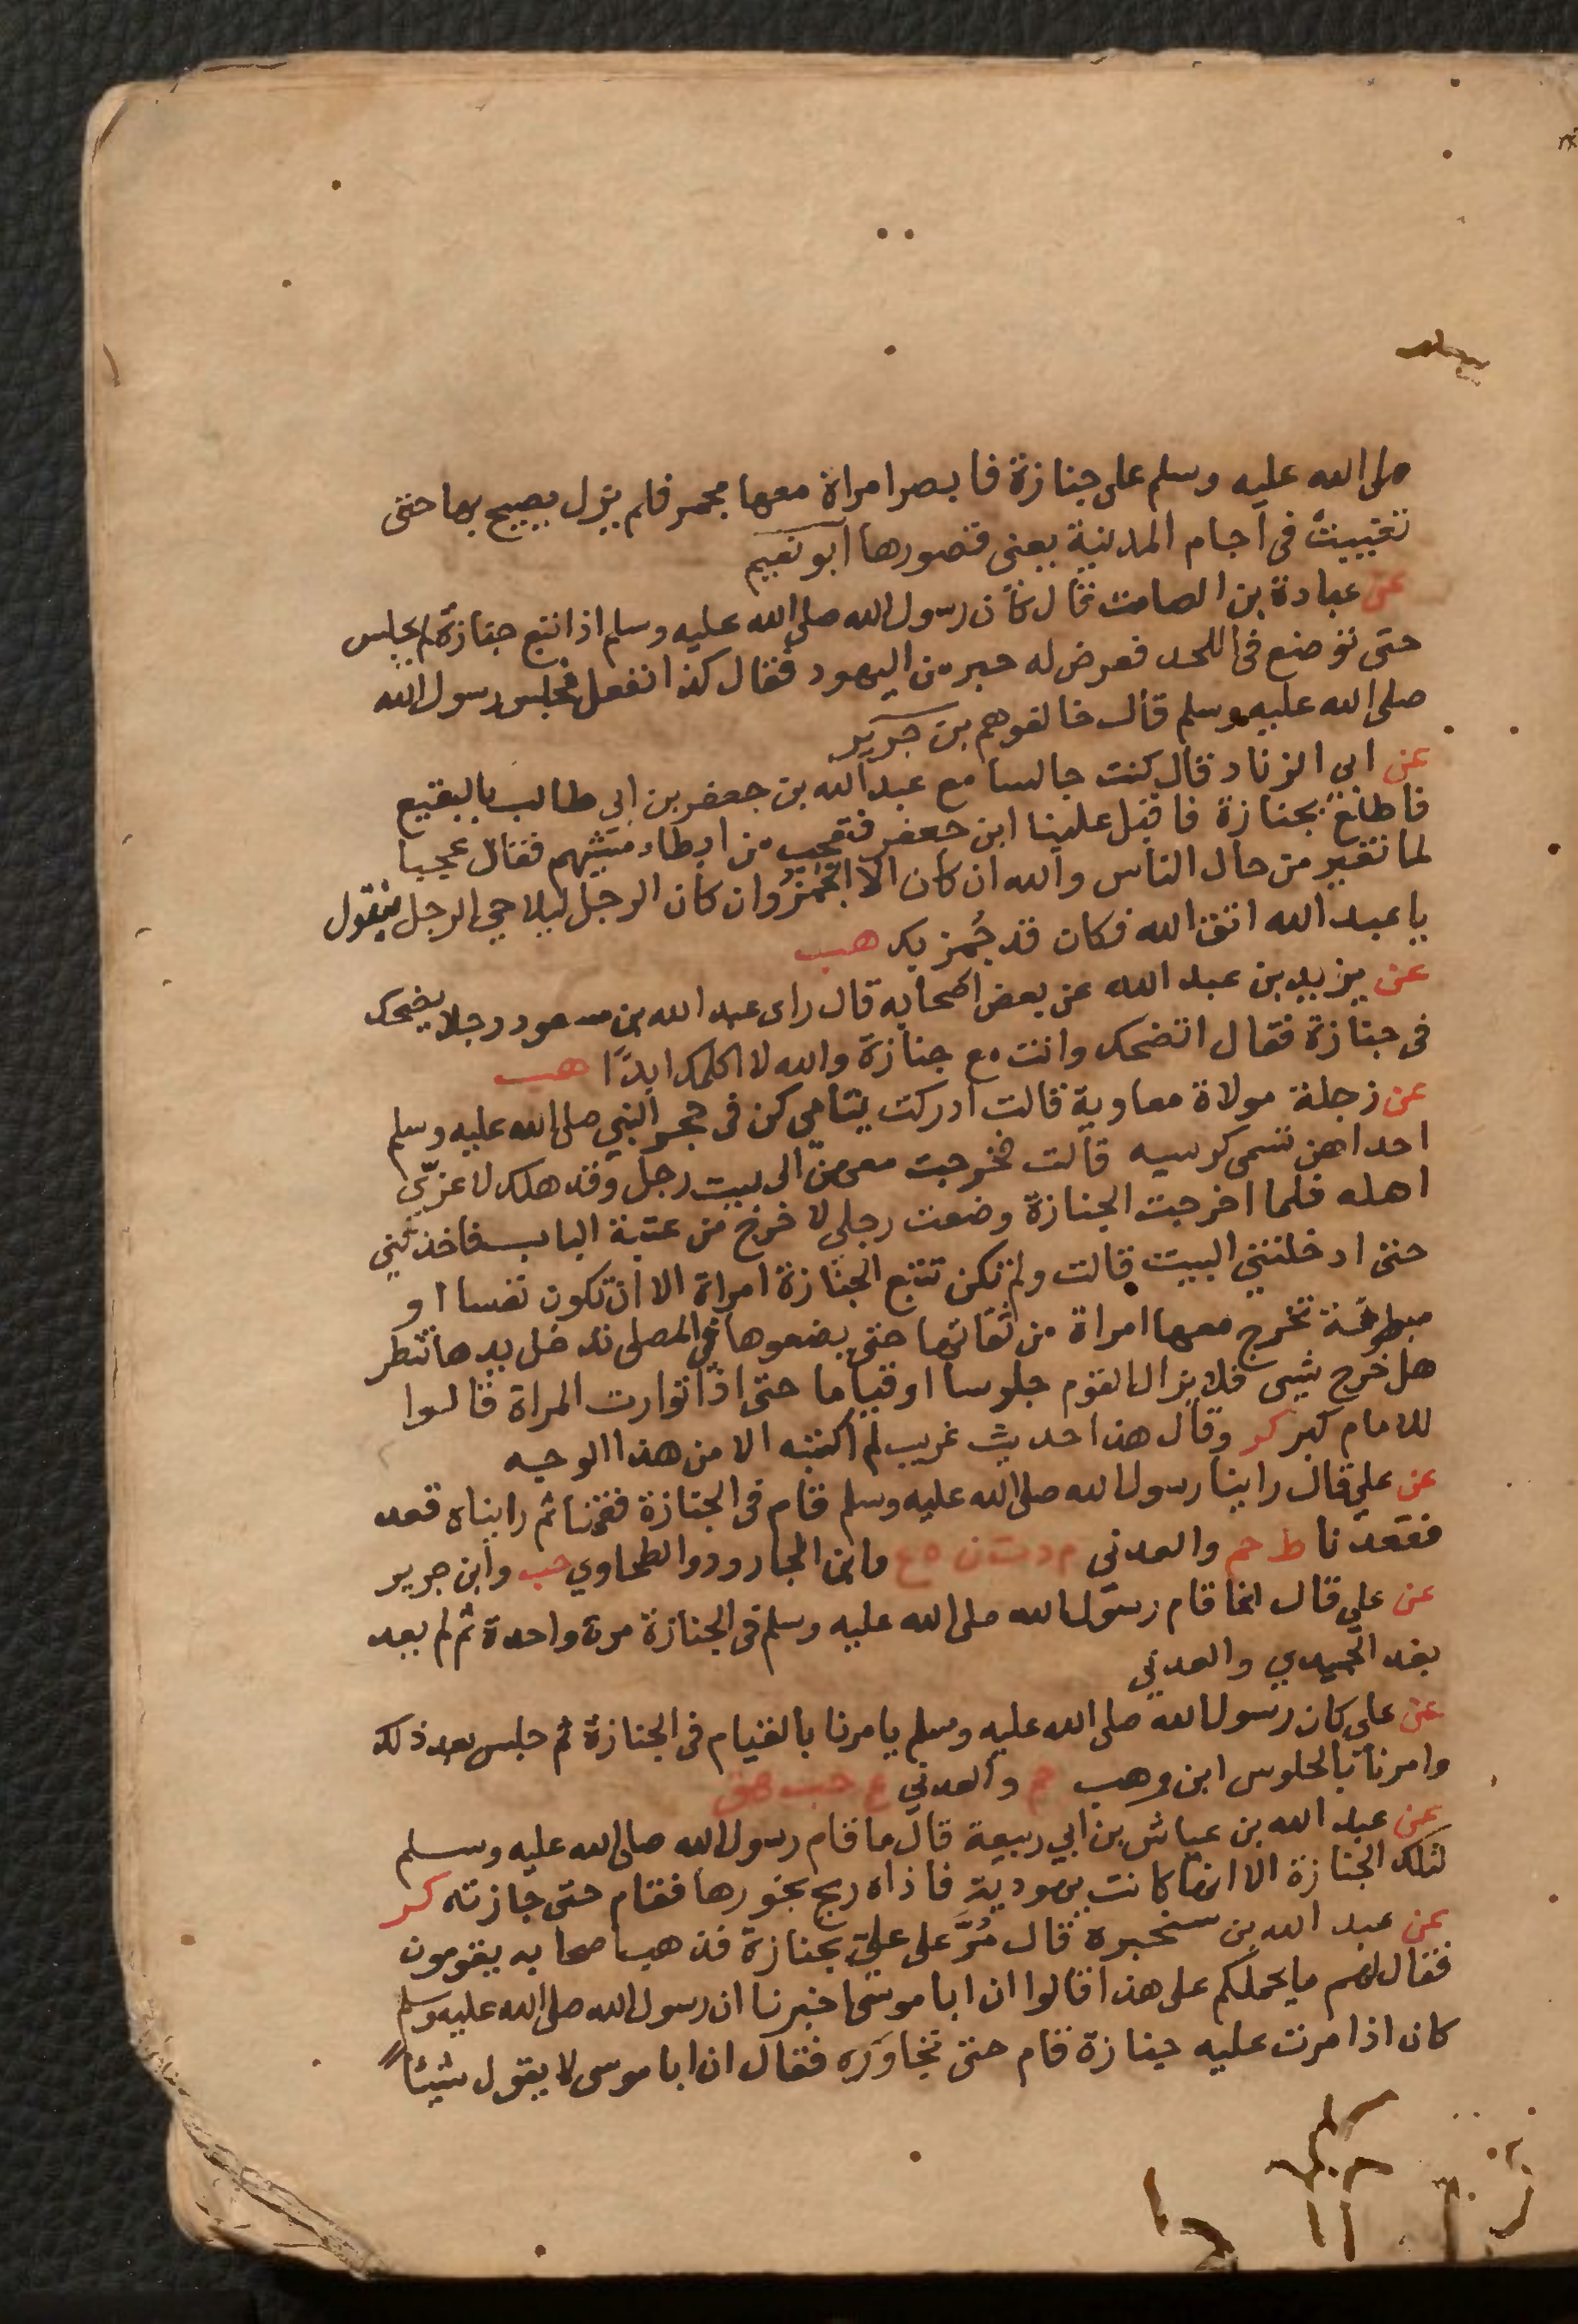 صلى الله عليه وسلم على جنازة فابصر امراة معها مجمر فلم يزل يصيح بها حتى
تغيبت في آجام المدينة يعنى قصورها أبو نعيم
عن عبادة بن الصامت قال كان رسول الله صلى الله عليه وسلم اذا تبع جنازة لم يجلس
حتى توضع في اللحد فعرض له حبر من اليهود فقال كذا نفعل فجلس رسول الله
صلى الله عليه وسلم قال خالفوهم بن جرير
عن ابي الزناد قال كنت جالسا مع عبد الله بن جعفر بن ابي طالب بالبقيع
فاطلع بجنازة فاقبل علينا ابن جعفر فتعجب من ابطاء مشيهم فقال عجبا
لما تغير من حال الناس والله ان كان الا الجمز وان كان الرجل ليلاحي الرجل فيقول
يا عبد الله اتق الله فكان قد جُمز بك هب
عن يزيد بن عبد الله عن بعض اصحابه قال راى عبد الله بن مسعود رجلا يضحك
في جنازة فقال اتضحك وانت مع جنازة والله لا اكلمك ابدًا هب
عن زجلة مولاة معاوية قالت ادركت يتامى كن في حجر النبي صلى الله عليه وسلم
احداهن تسمى كرسيه قالت فخرجت معهن الى بيت رجل وقد هلك لاعزّي
اهله فلما اخرجت الجنازة وضعت رجلي لاخرج من عتبة الباب فاخذتني
حتى ادخلتني البيت قالت ولم تكن تتبع الجنازة امراة الا ان تكون نفسا او
مبطونة تخرج معها امراة من ثقاتها حتى يضعوها في المصلى تدخل يدها تنظر
هل خرج شيى فلا يزال القوم جلوسا او قياما حتى اذا توارت المراة قالوا
للامام كبر كر وقال هذا حديث غريب لم أكتبه الا من هذا الوجه
عن علي قال راينا رسول الله صلى الله عليه وسلم قام في الجنازة فقمنا ثم رايناه قعد
فقعدنا ط حم والعدني م د ت ن ه ع وابن الجارود والطحاوي حب وابن جرير
عن علي قال انما قام رسول الله صلى الله عليه وسلم في الجنازة مرة واحدة ثم لم يعد
بعد الحميدي والعدني
عن علي كان رسول الله صلى الله عليه وسلم يامرنا بالقيام في الجنازة ثم جلس بعد ذلك
وامرنا بالجلوس ابن وهب حم والعدني ع حب هق
عن عبد الله بن عياش بن أبي ربيعة قال ما قام رسول الله صلى الله عليه وسلم
لتلك الجنازة الا انها كانت يهودية فاذاه ريح بخورها فقام حتى جازته كر
عن عبد الله بن سخبرة قال مُرَّ على عليّ بجنازة فذهب اصحابه يقومون
فقال لهم ما يحملكم على هذا قالوا ان ابا موسى اخبرنا ان رسول الله صلى الله عليه وسلم
كان اذا مرت عليه جنازة قام حتى تجاوزه فقال ان ابا موسى لا يقول شيئاً